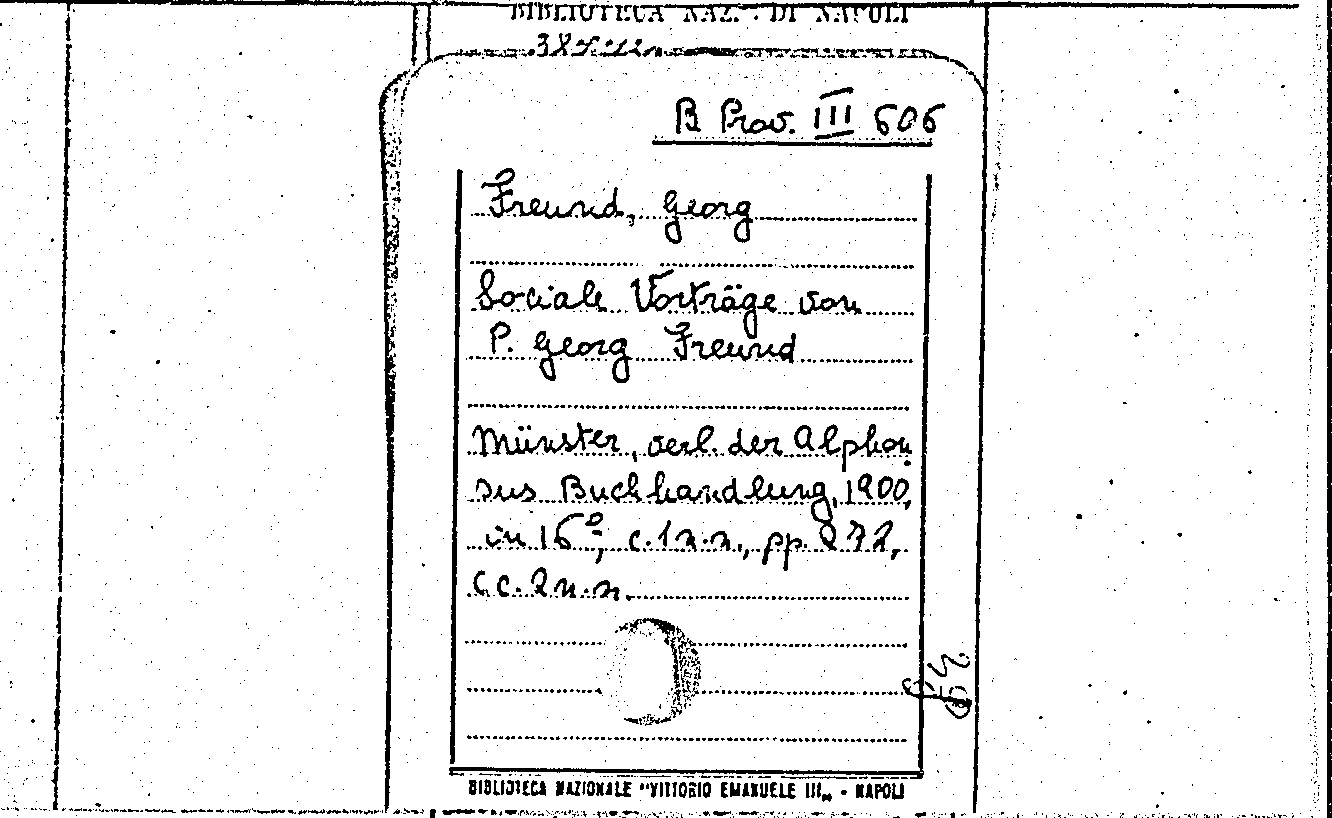 BIBLIOTECA NAZ. DI NAPOLI
B. Prov. III 606
Freund, Georg
Sociale Vorträge von
P. Georg Freund
Münster, verl. der Alphon
sus Buchhandlung, 1900,
in 16º, c. 1 n.n., pp. 272,
cc. 2 n.n.
BIBLIOTECA NAZIONALE "VITTORIO EMANUELE III„ - NAPOLI